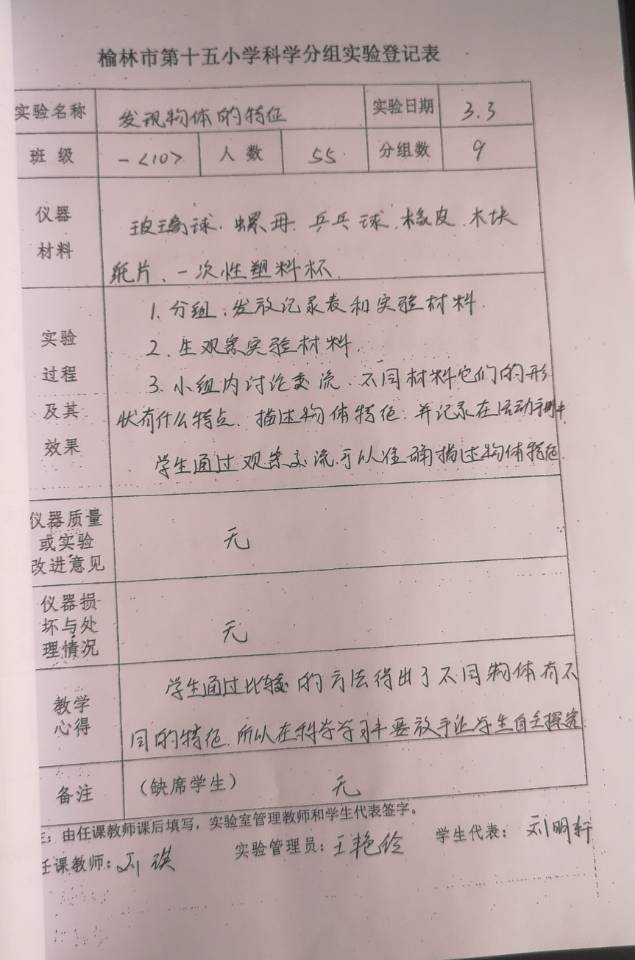 榆林市第十五小学科学分组实验登记表
实验名称 发现物体的特征 实验日期 3.3
班级 一<10> 人数 55 分组数 9
仪器
材料
玻璃球、螺母、乒乓球、橡皮、木块
纸片、一次性塑料杯.
实验
过程
及其
效果
1. 分组,发放记录表和实验材料.
2. 生观察实验材料.
3. 小组内讨论交流,不同材料它们的形
状有什么特点,描述物体特征,并记录在活动手册中
学生通过观察交流可以准确描述物体特征.
仪器质量
或实验
改进意见
无
仪器损
坏与处
理情况
无
教学
心得
学生通过比较的方法得出了不同物体有不
同的特征,所以在科学学习中要放手让学生自主探究
备注 (缺席学生) 无
注:由任课教师课后填写,实验室管理教师和学生代表签字。
任课教师:刘琪 实验管理员:王艳玲 学生代表:刘明轩